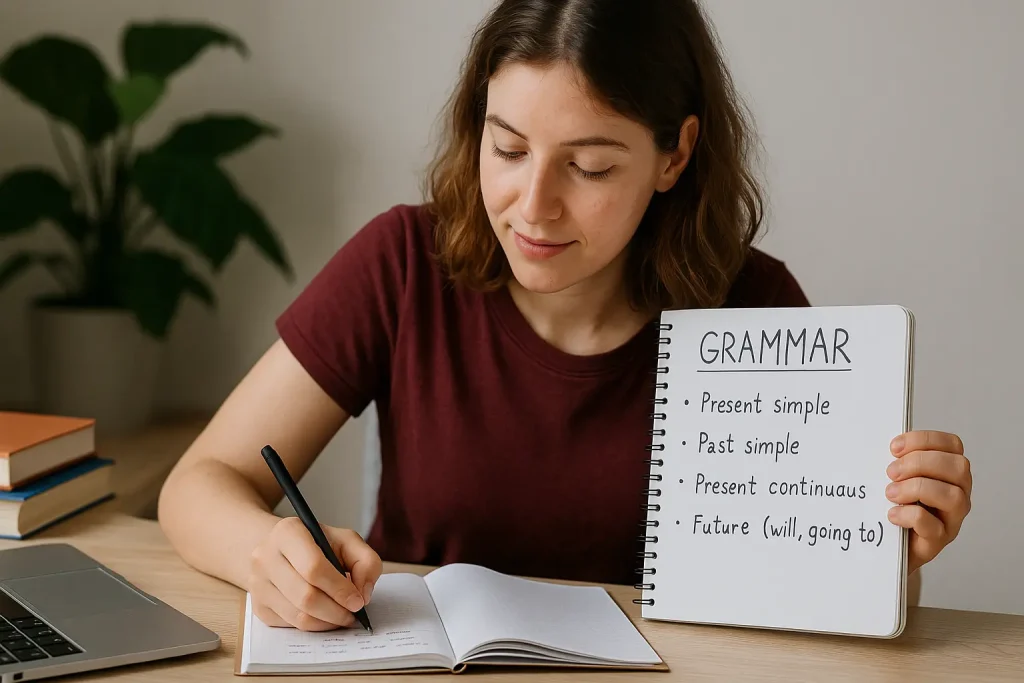 GRAMMAR
• Present simple
• Past simple
• Present continuaus
• Future (will, going to)